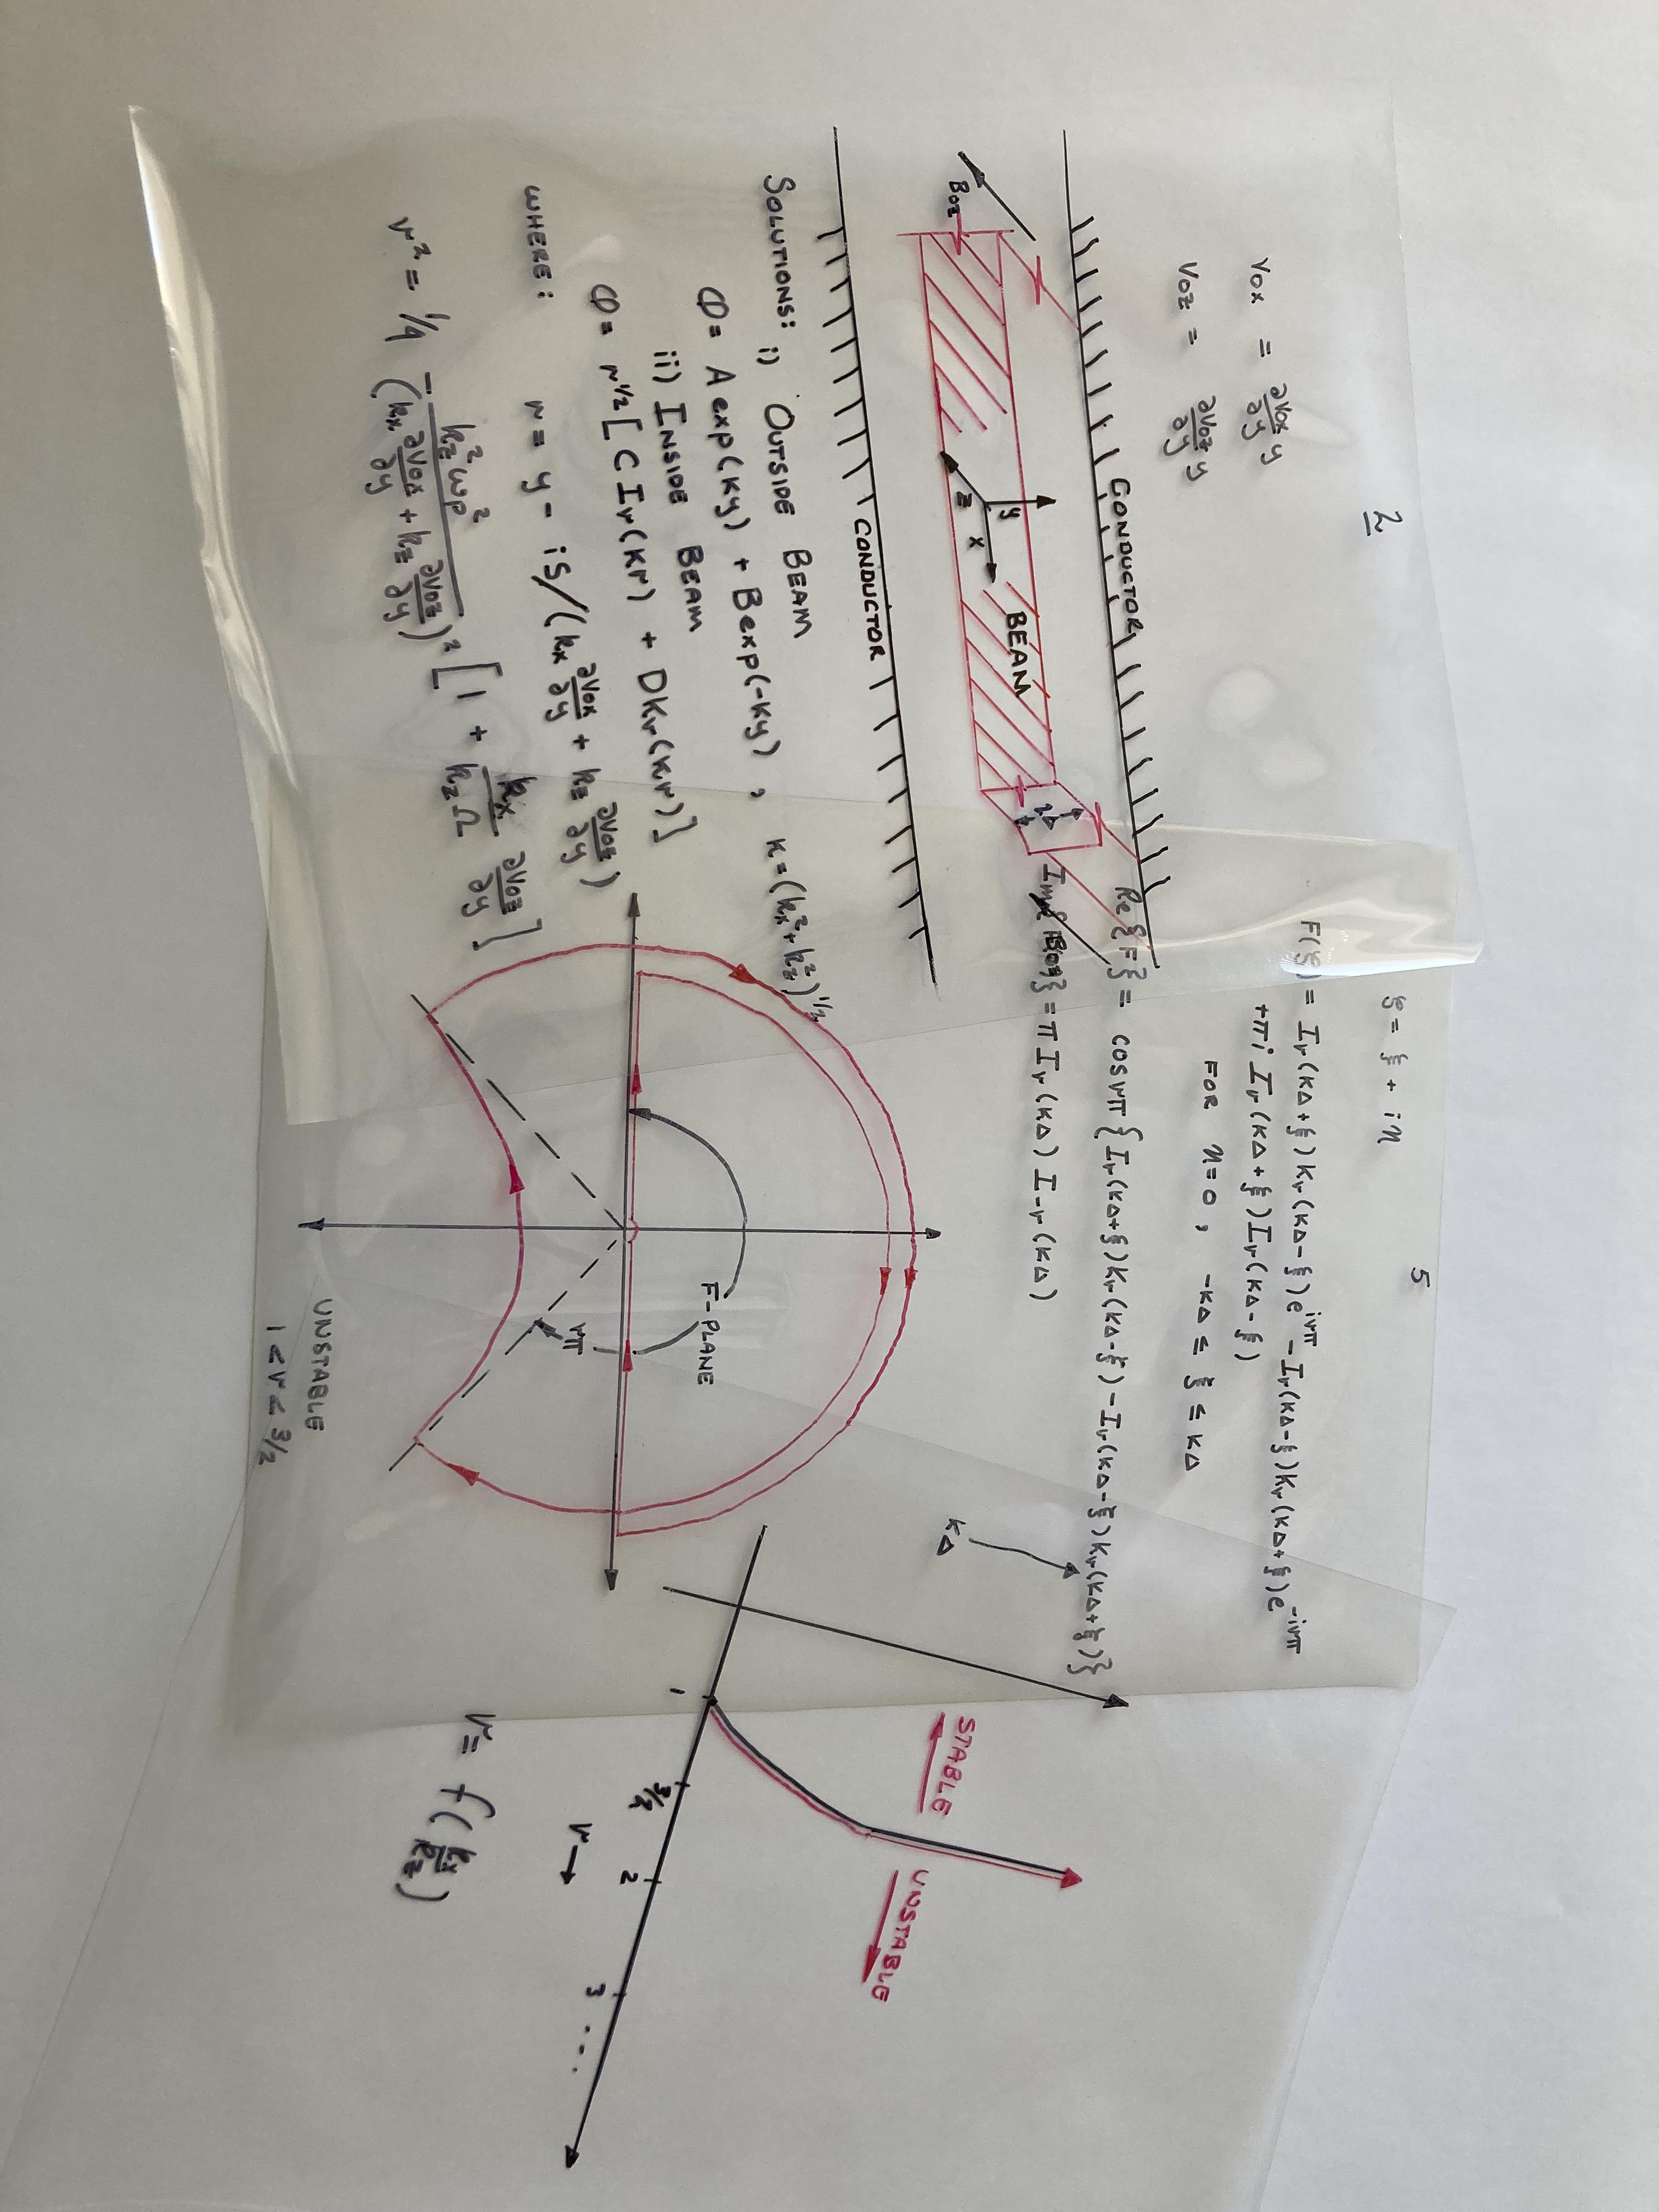 2
V₀ₓ = ∂V₀ₓ/∂y y
V₀z = ∂V₀z/∂y y
CONDUCTOR
B₀z
y
x
z
BEAM
CONDUCTOR
SOLUTIONS: i) OUTSIDE BEAM
Φ = A exp(κy) + B exp(-κy) , κ = (kₓ² + k_z²)^1/2
ii) INSIDE BEAM
Φ = r^1/2 [ C Iᵥ(κr) + D Kᵥ(κr) ]
WHERE: r = y - iS/(kₓ ∂V₀ₓ/∂y + k_z ∂V₀z/∂y)
ν² = 1/4 - k_z² ωp² / (kₓ ∂V₀ₓ/∂y + k_z ∂V₀z/∂y)² [ 1 + kₓ/k_zΩ ∂V₀z/∂y ]
5
ζ = ξ + iη
F(ζ) = Iᵥ(κΔ+ξ)Kᵥ(κΔ-ξ)e^iνπ - Iᵥ(κΔ-ξ)Kᵥ(κΔ+ξ)e^-iνπ
+πi Iᵥ(κΔ+ξ)Iᵥ(κΔ-ξ)
FOR η=0, -κΔ ≤ ξ ≤ κΔ
Re{F} = cosνπ{Iᵥ(κΔ+ξ)Kᵥ(κΔ-ξ) - Iᵥ(κΔ-ξ)Kᵥ(κΔ+ξ)}
= π Iᵥ(κΔ) I-ᵥ(κΔ)
F-PLANE
νπ
UNSTABLE
1 < ν < 3/2
κΔ
STABLE
UNSTABLE
1 3/2 2 3 ...
ν →
ν = f(kₓ/k_z)